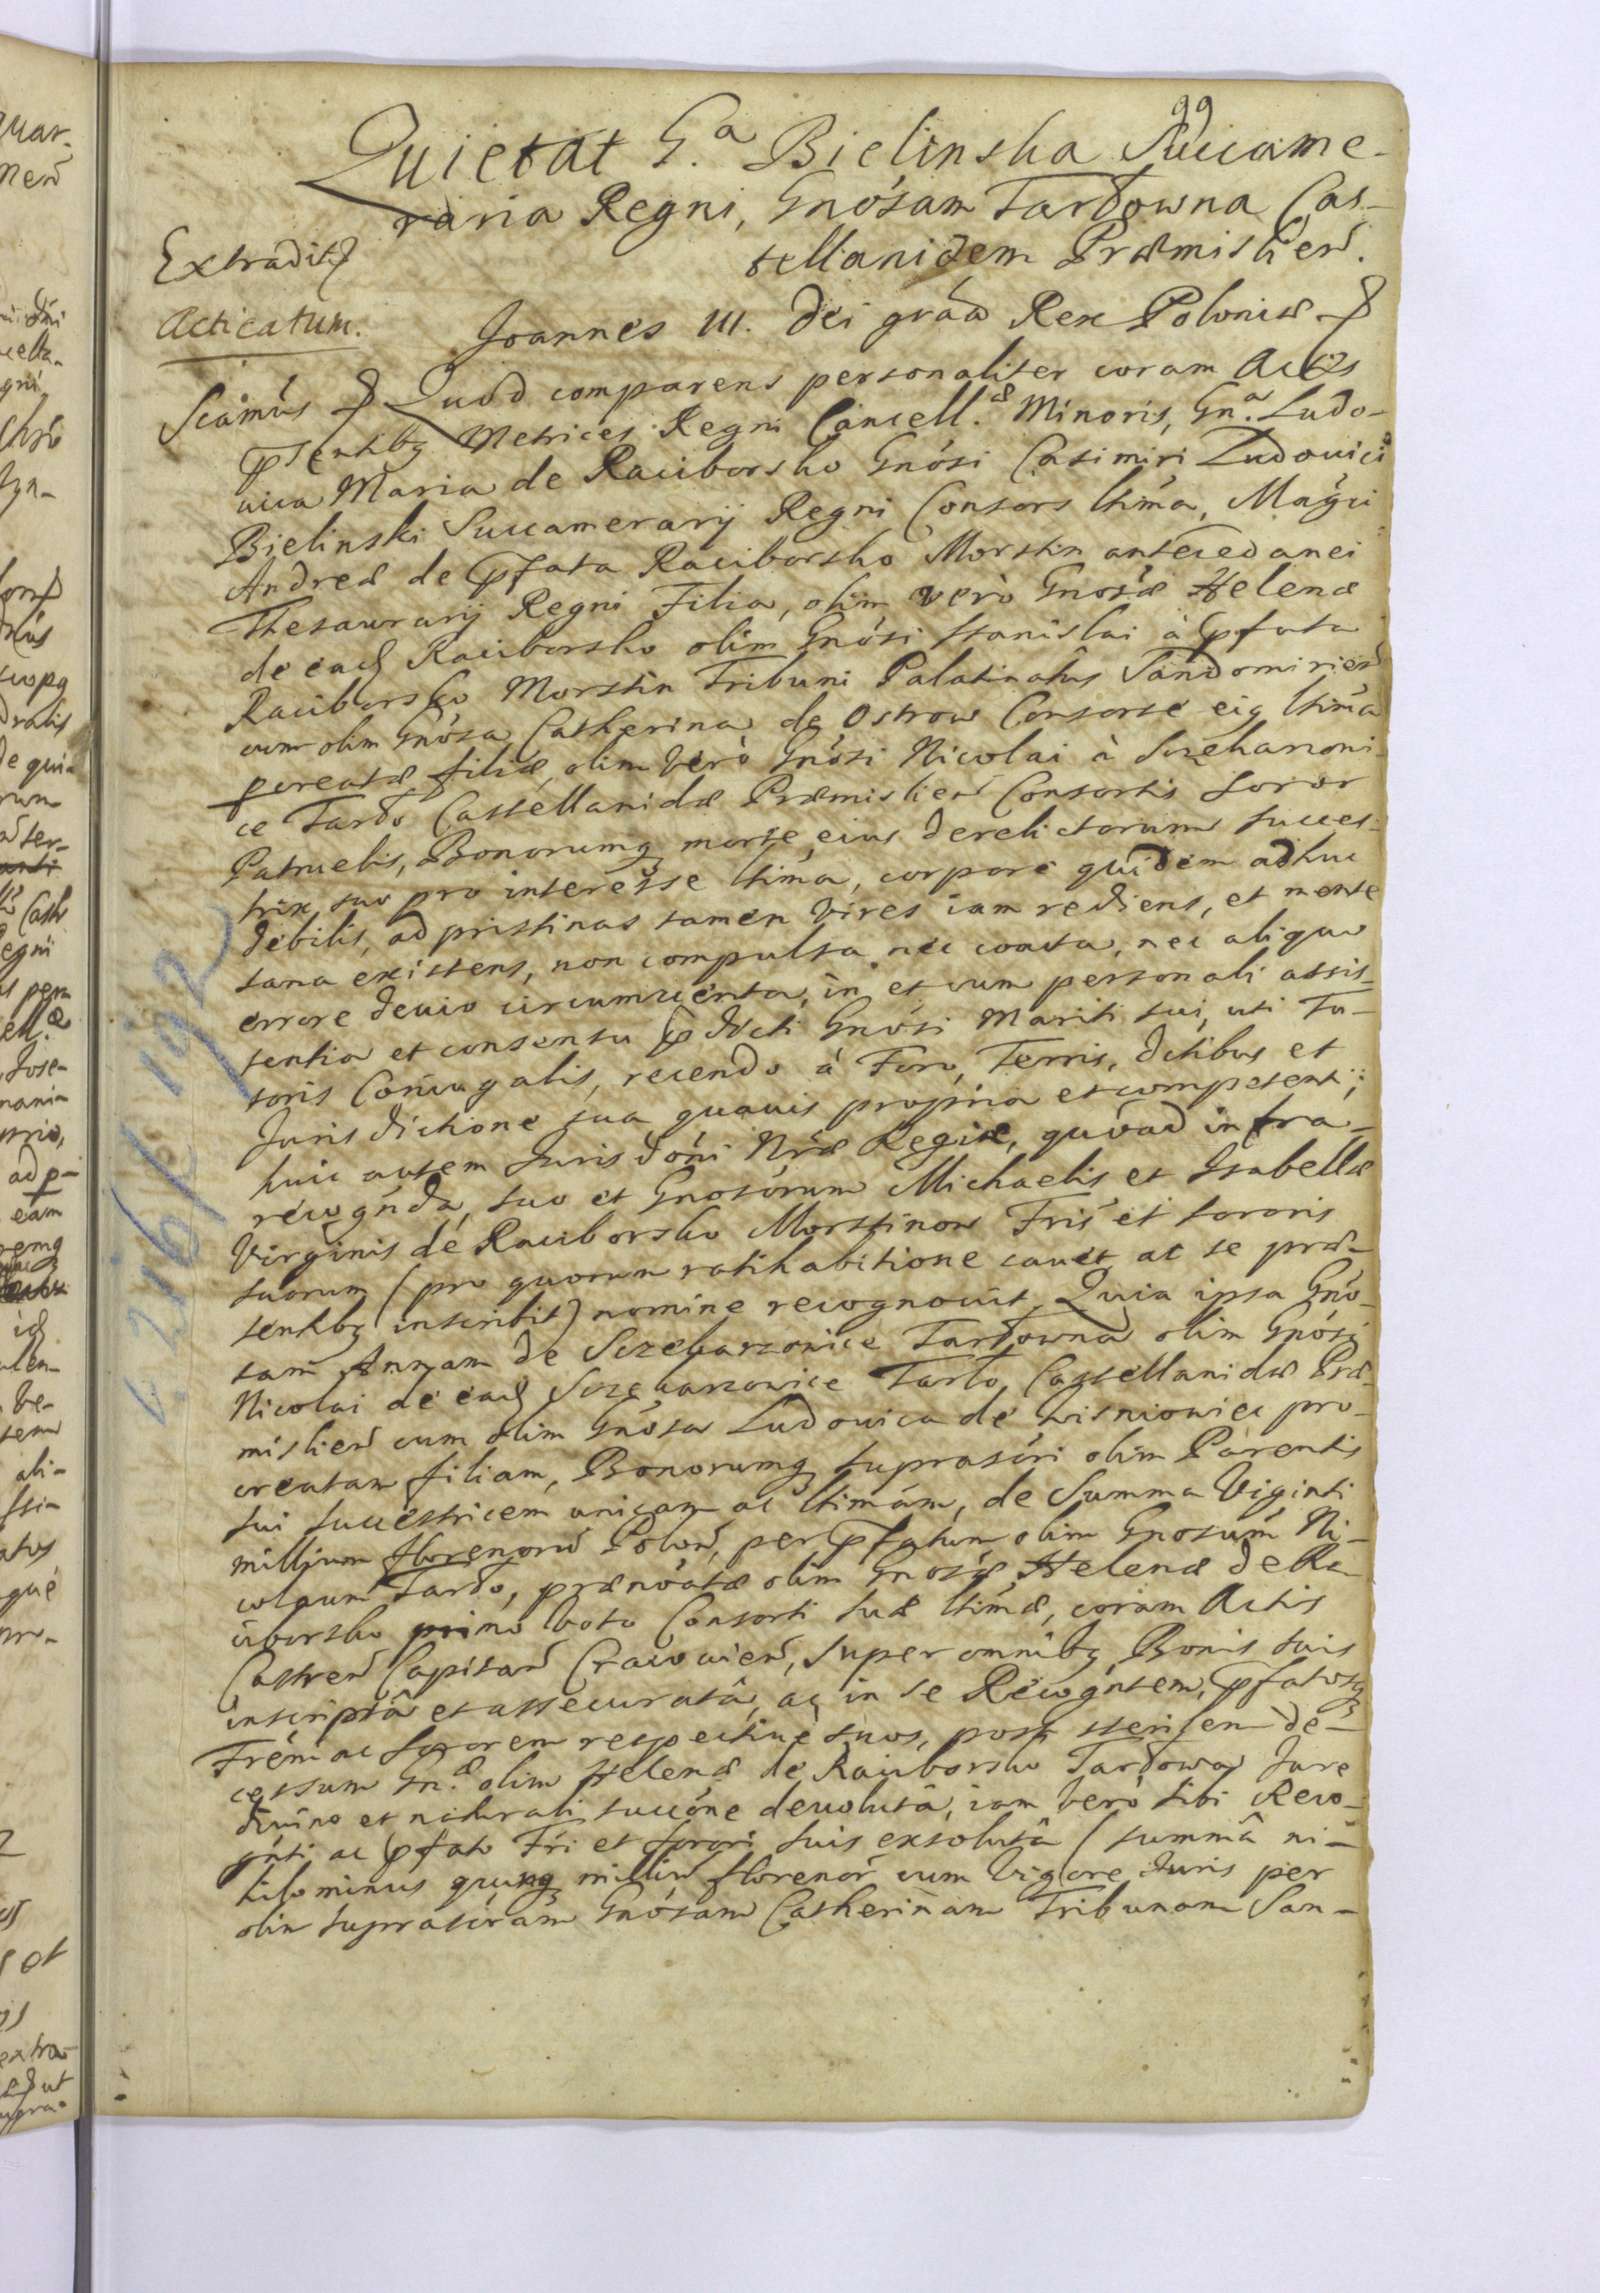 99
Quietat G.a Bielinska Succame-
raria Regni, Gnósam Tarłowna Cas-
tellanidem Præmislien.
Extradit
Acticatum.
Joannes III. Dei gráa Rex Poloniæ
Scámús Quód comparens personaliter coram Actis
pñtibq Metrices Regni Cancell.æ Minoris, Gn.a Ludo-
uica Maria de Raciborsko Gnósi Casimiri Ludouici
Bielinski Succamerarij Regni Consors ltíma, Magci
Andreæ de pfata Raciborsko Morstin antecedanei
Thesaurarij Regni Filia, olim verò Gnosæ Helenæ
de ead Raciborsko olim Gnósi Stanislai à pfata
Raciborsko Morstin Tribuni Palatinatûs Sandomirien
cum olim Gnósa Catherina de Ostrow Consorte eiq ltíma
pcreatæ filiæ, olim verò Gnósi Nicolai à Szczekarzoui
ce Tarło Castellanidæ Præmislien Consortis soror
Patruelis, Bonorumq morte eius derelictorum succes-
trix, suo pro interesse ltíma, corpore quidem adhuc
debilis, ad pristinas tamen vires iam rediens, et mente
sana existens, non compulsa nec coacta, nec aliquo
errore deuio circumuenta, in et cum personali assis-
tentia et consensu pdicti Gnósi Mariti sui, uti Tu-
toris Coniugalis, recendo à Foro, Terris, dctibus et
Jurisdictione sua quauis propria et competenti;
huic autem Jurisdóni Nræ Regiæ, quóad infra-
recognda, suo et Gnosórum Michaelis et Isabellæ
Virginis de Raciborsko Morstinow Fris et sororis
suorum (pro quorum ratihabitione cauet ac se præ-
sentibq inscribit) nomine recognouit, Quia ipsa Gnó-
sam Annam de Szczekarzouice Tarłowna olim Gnósi
Nicolai de ead Szczekarzowice Tarło, Castellanidæ Præ-
mislien cum olim Gnósa Ludouica de Wisniowiec pro-
creatam filiam, Bonorumq suprascri olim Parentis
sui successtricem unicam ac ltímam, de Summa Viginti
millium florenorú Polon, per pfatum olim Gnosúm Ni-
colaum Tarło, prænóatæ olim Gnosæ Helenæ de Ra-
ciborsko primo voto Consorti suæ ltímæ, coram Actis
Castren Capitan Cracouien, super omnibq Bonis suis
inscriptâ et assecuratâ, ac in se Recogntem, pfatosq
Frem ac sororem respectiuè suos, post sterilem de-
cessum Gn.æ olim Helenæ de Raciborsko Tarłowa Jure
diuino et naturali, successióne deuolutâ, iam verò sibi Reco-
gnti, ac pfato Fri et sorori suis exsolutâ (summâ ni-
hilominus quinq millin florenor cum vigore Juris per
olim suprascram Gnósam Catherinam Tribunam San-